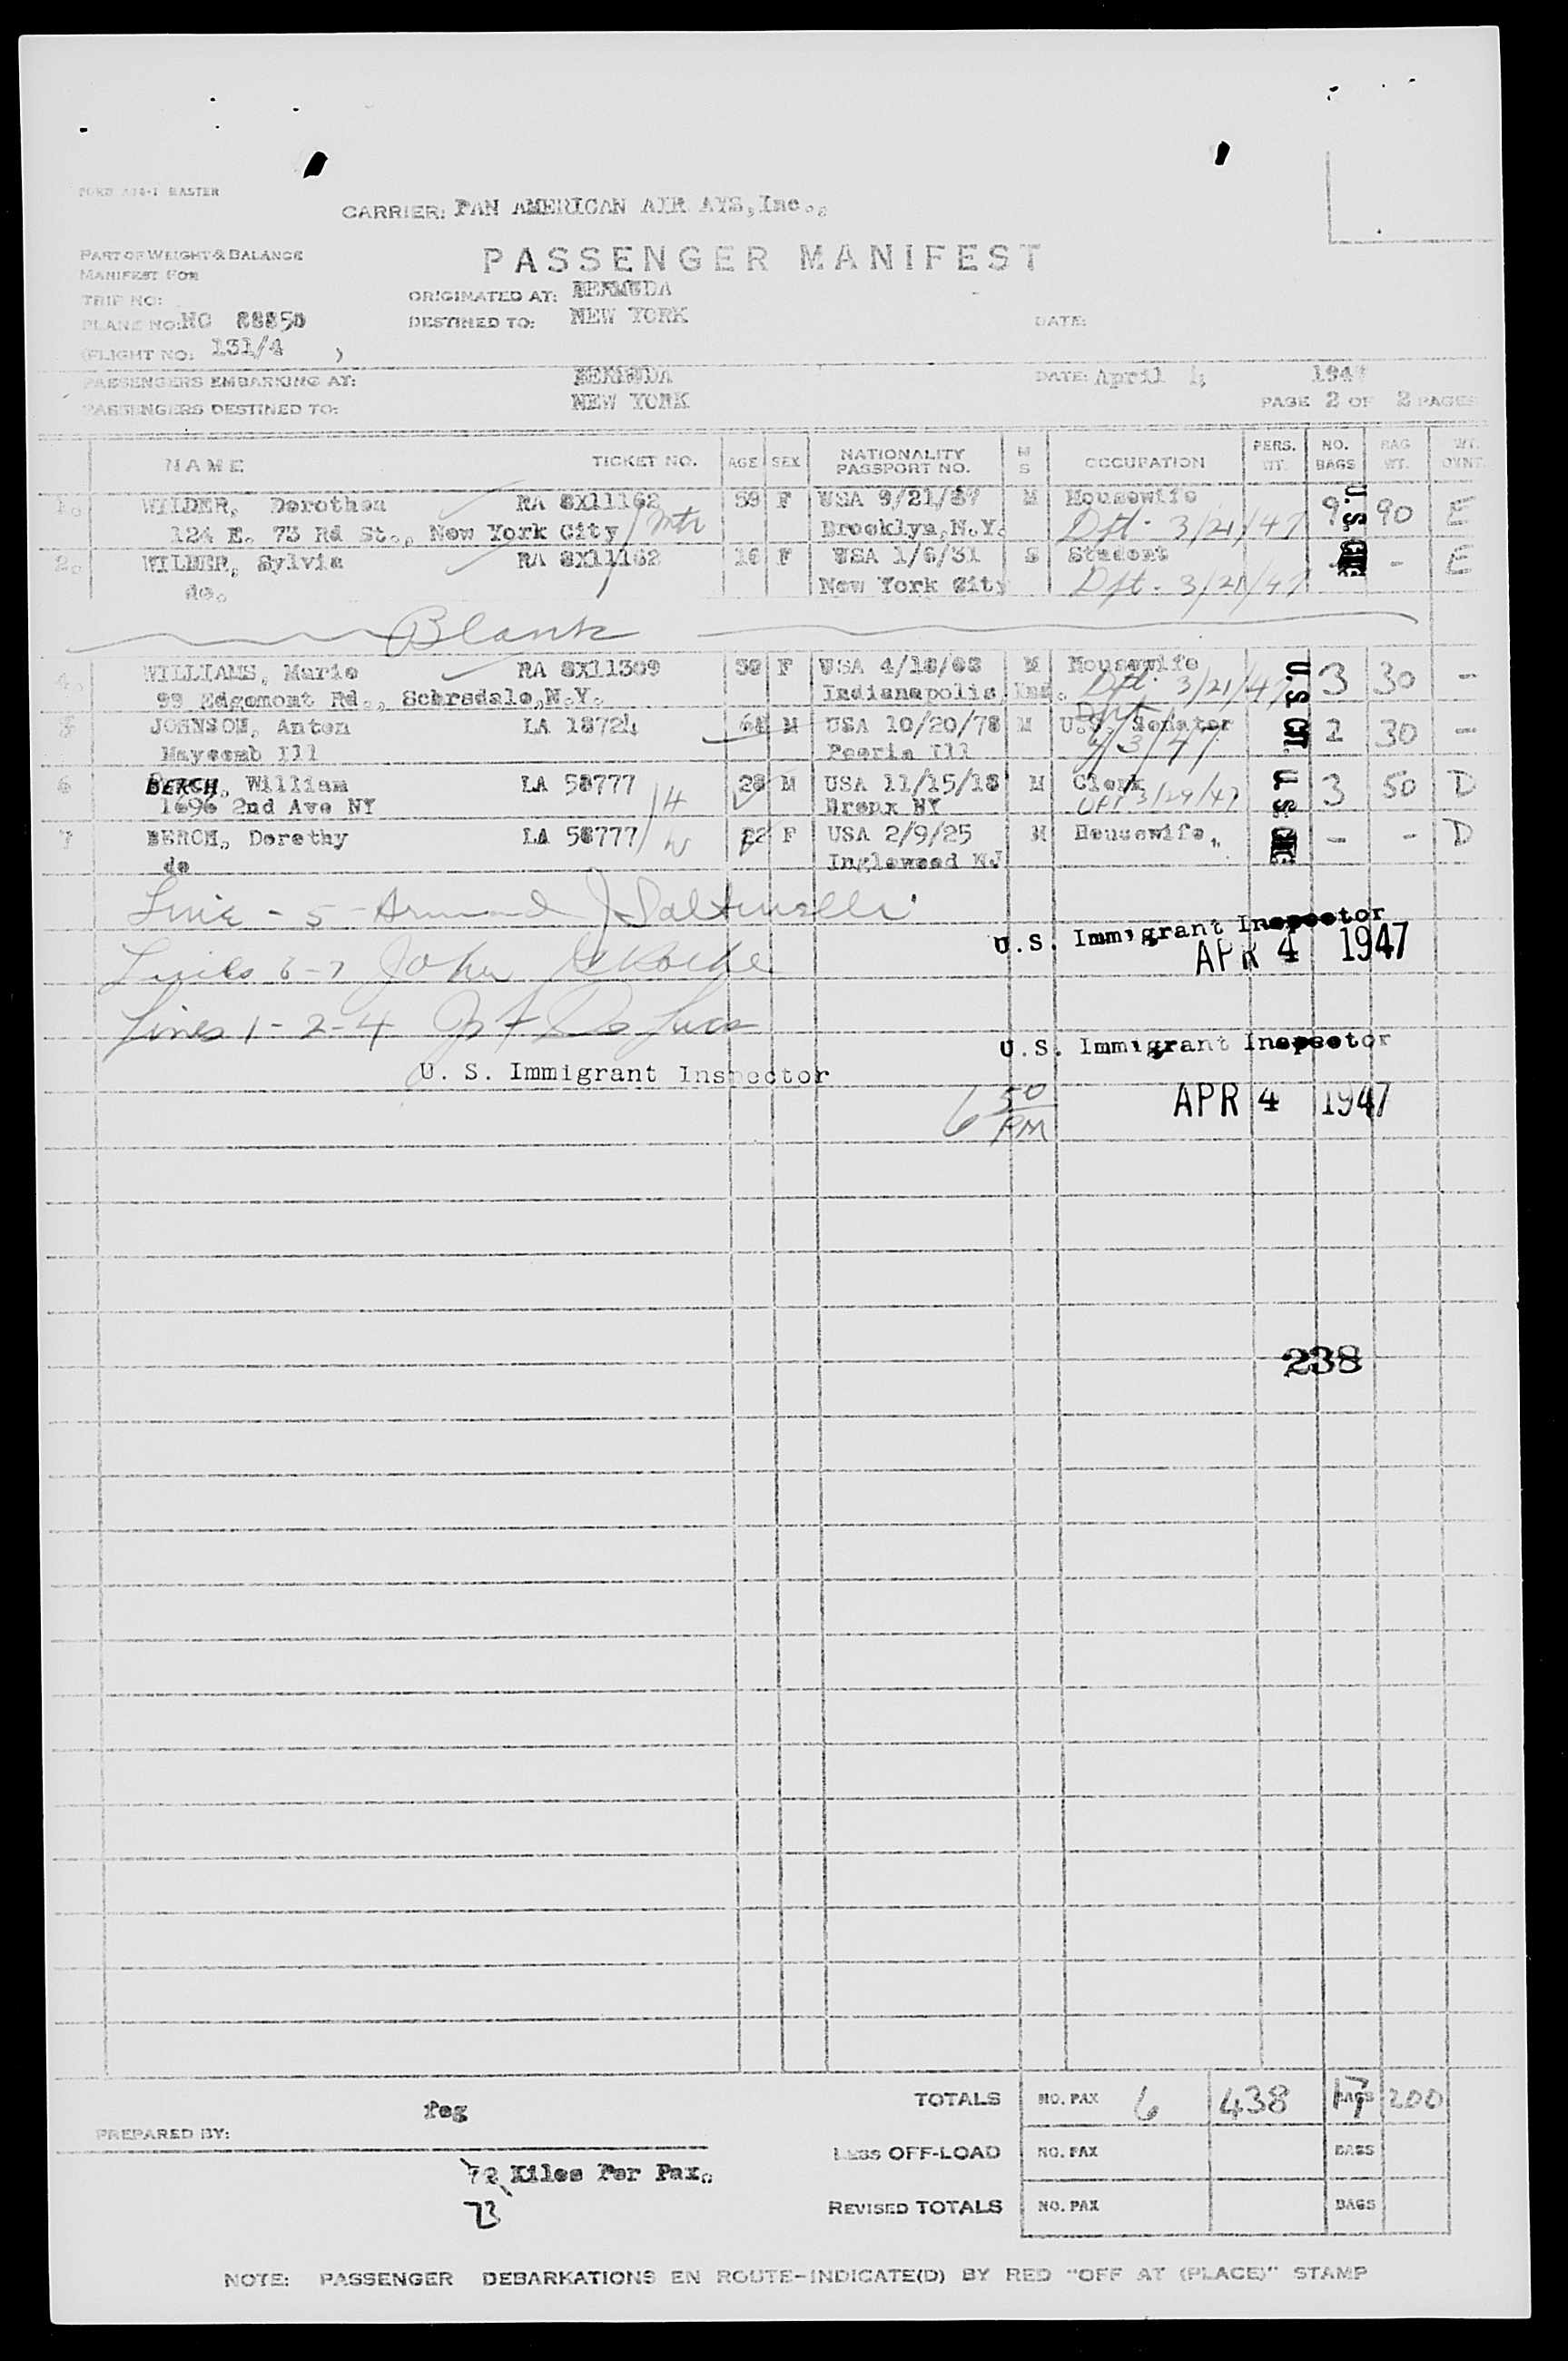 FORM A10-1 EASTER
CARRIER: PAN AMERICAN AIR AYS, Inc.,
PART OF WEIGHT & BALANCE
MANIFEST FOR
PASSENGER MANIFEST
TRIP NO:
ORIGINATED AT: BERMUDA
PLANE NO: NC 88850
DESTINED TO: NEW YORK
DATE:
(FLIGHT NO: 131/4 )
PASSENGERS EMBARKING AT: BERMUDA DATE: April 4, 1947
PASSENGERS DESTINED TO: NEW YORK PAGE 2 OF 2 PAGES
NAME TICKET NO. AGE SEX NATIONALITY PASSPORT NO. M S OCCUPATION PERS. WT. NO. BAGS BAG WT. WT. OVNT.
1. WILDER, Dorothea RA SX11162 59 F USA 9/21/87 M Housewife 9 90 E
124 E. 73 Rd St., New York City / Mtr Brooklyn, N.Y. Dft. 3/21/47 U.S.
2. WILDER, Sylvia RA SX11162 16 F USA 1/6/31 S Student - - E
do. New York City Dft. 3/21/47
Blank
4. WILLIAMS, Marie RA SX11309 F USA M Housewife 3 30 -
99 Edgemont Rd., Scarsdale, N.Y. Indianapolis, Ind. Dft. 3/21/47 U.S. CIT
5 JOHNSON, Anton LA 18724 M USA 10/20/78 M U.S. Senator 2 30 -
Maycomb Ill Peoria Ill Dft 4/3/47
6 BERCH, William LA 58777 / H 28 M USA 11/15/18 M Clerk 3 50 D
1696 2nd Ave NY Bronx NY Dft 3/29/47 U.S.
7 BERCH, Dorothy LA 58777 / W 22 F USA 2/9/25 M Housewife, - - D
do Inglewood NJ
Line - 5 - Armand J
U.S. Immigrant Inspector
APR 4 1947
Lines 6-7 John
Lines 1-2-4
U.S. Immigrant Inspector
U. S. Immigrant Inspector
6 50 PM
APR 4 1947
238
TOTALS NO. PAX 6 438 17 BAGS 200
feg
PREPARED BY:
LESS OFF-LOAD NO. PAX BAGS
72 Kilos Per Pax.
73
REVISED TOTALS NO. PAX BAGS
NOTE: PASSENGER DEBARKATIONS EN ROUTE-INDICATE(D) BY RED "OFF AT (PLACE)" STAMP